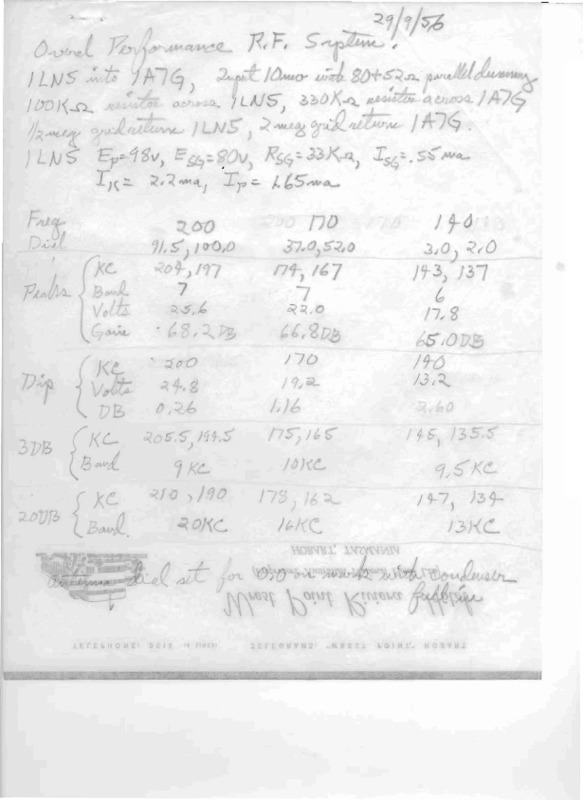 29/9/56
Overal Performance R.F. System.
1LN5 into 1A7G, 10mv with 80+52Ω parallel dummy
100KΩ resistor across 1LN5, 330KΩ resistor across 1A7G
1/2 meg grid return 1LN5, 2 meg grid return 1A7G.
1LN5 Ep=98v, ESG=80v, RSG=33KΩ, ISG=.55ma
IK= 2.2ma, Ip= 1.65ma
Freq 200 170 140
Dial 91.5, 100.0 37.0, 52.0 3.0, 2.0
Peaks KC 204, 197 174, 167 143, 137
Band 7 7 6
Volts 25.6 22.0 17.8
Gain 68.2DB 66.8DB 65.0DB
Dip KC 200 170 140
Volts 24.8 19.2 13.2
DB 0.26 1.16 2.60
3DB KC 205.5, 194.5 175, 165 145, 135.5
Band 9KC 10KC 9.5KC
20DB KC 210, 190 178, 162 147, 134
Band. 20KC 16KC 13KC
HOBART, TASMANIA
Antenna dial set for 0.0 on with condenser
West Point Riviera
TELEPHONE: TELEGRAMS, "WREST POINT," HOBART